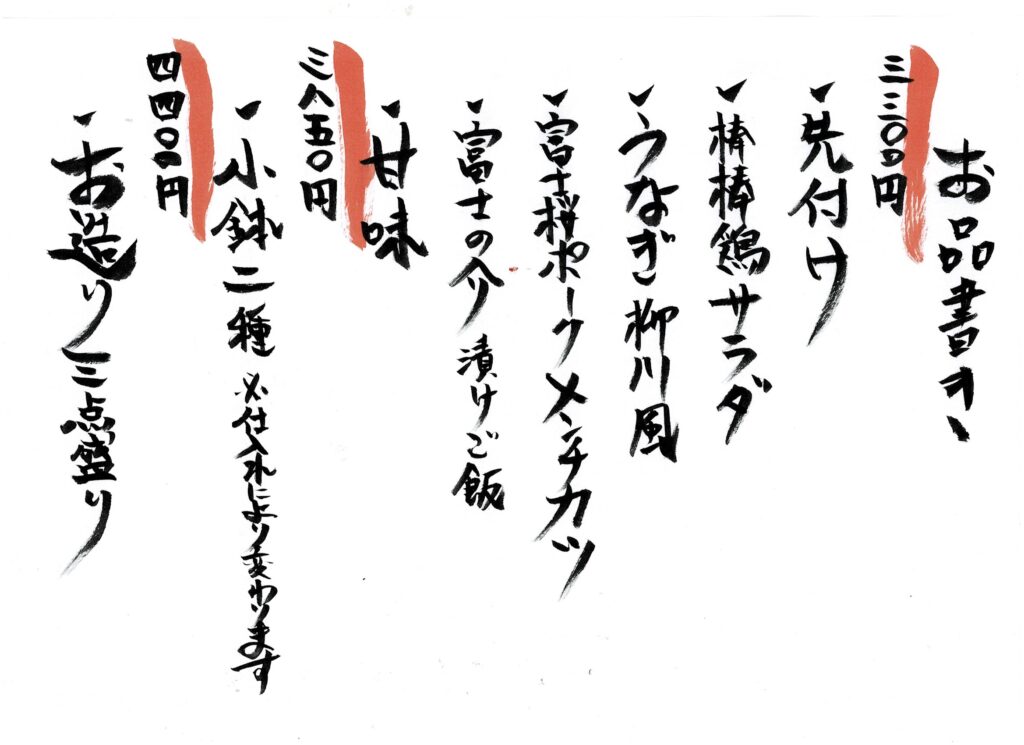 お品書き
三三〇〇円
・先付け
・棒棒鶏サラダ
・うなぎ柳川風
・富士桜ポークメンチカツ
・富士の介 漬けご飯
・甘味
三八五〇円
・小鉢二種 ※仕入れにより変わります
四四〇〇円
・お造り三点盛り